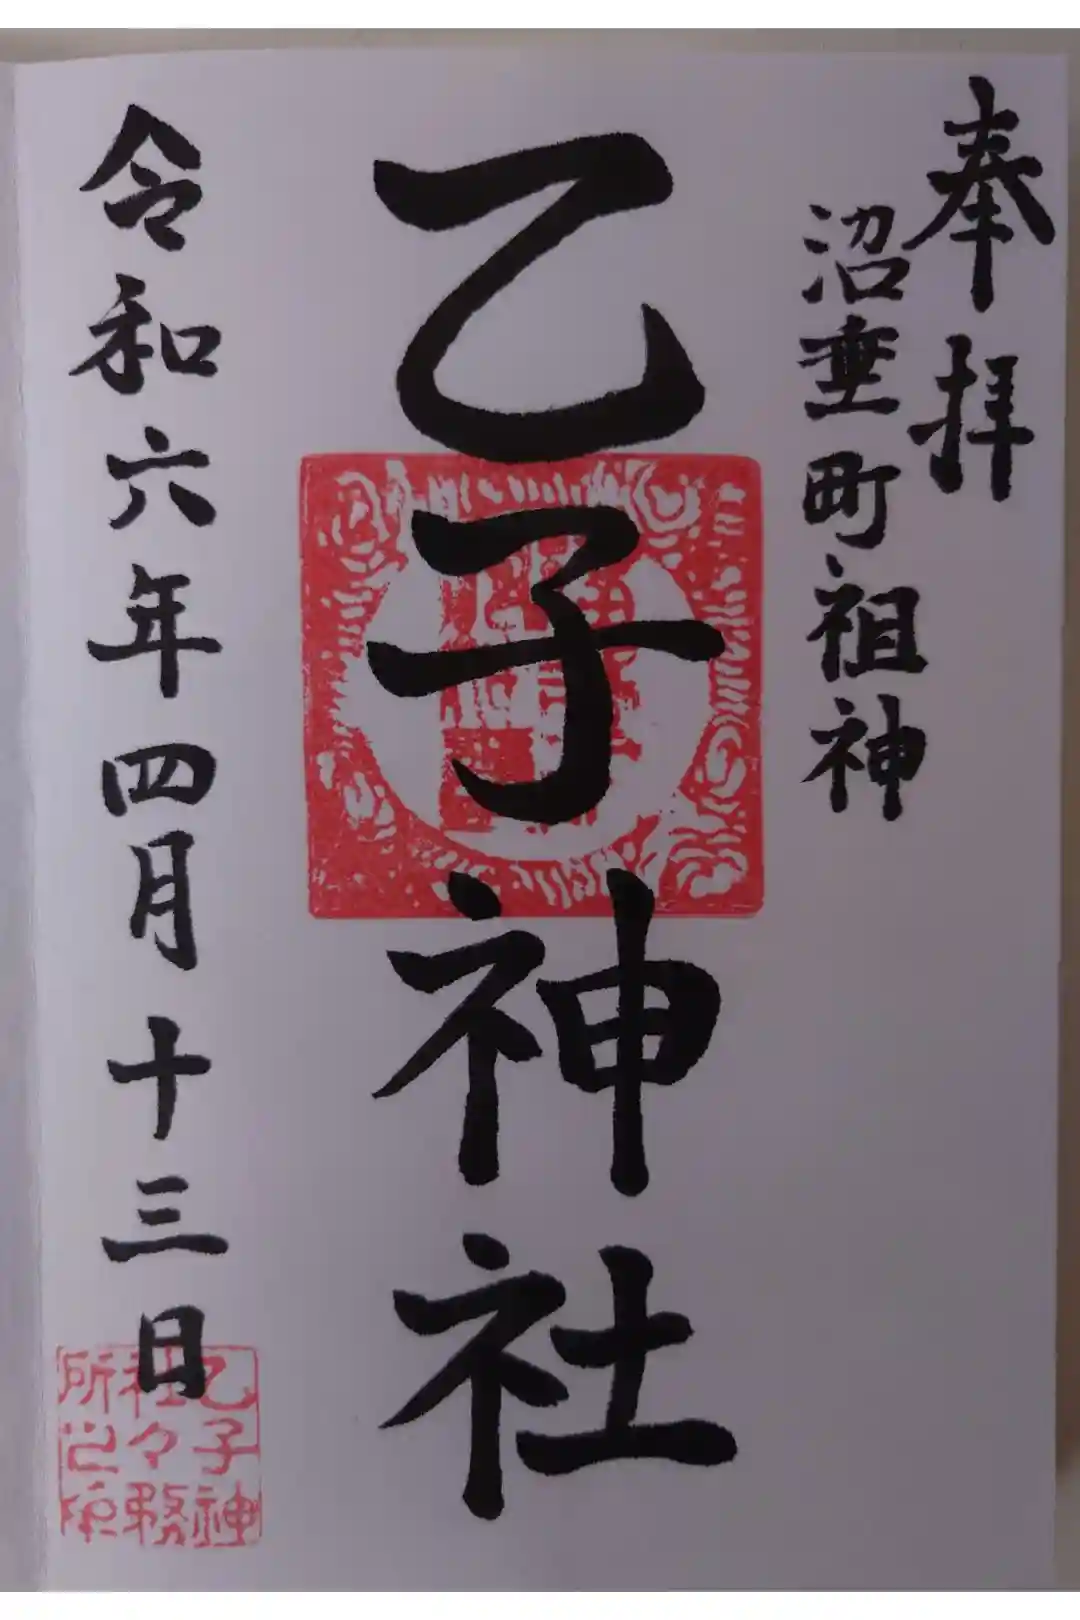 奉拝
沼垂町祖神
乙子神社
令和六年四月十三日
乙子神
社々務
所之印